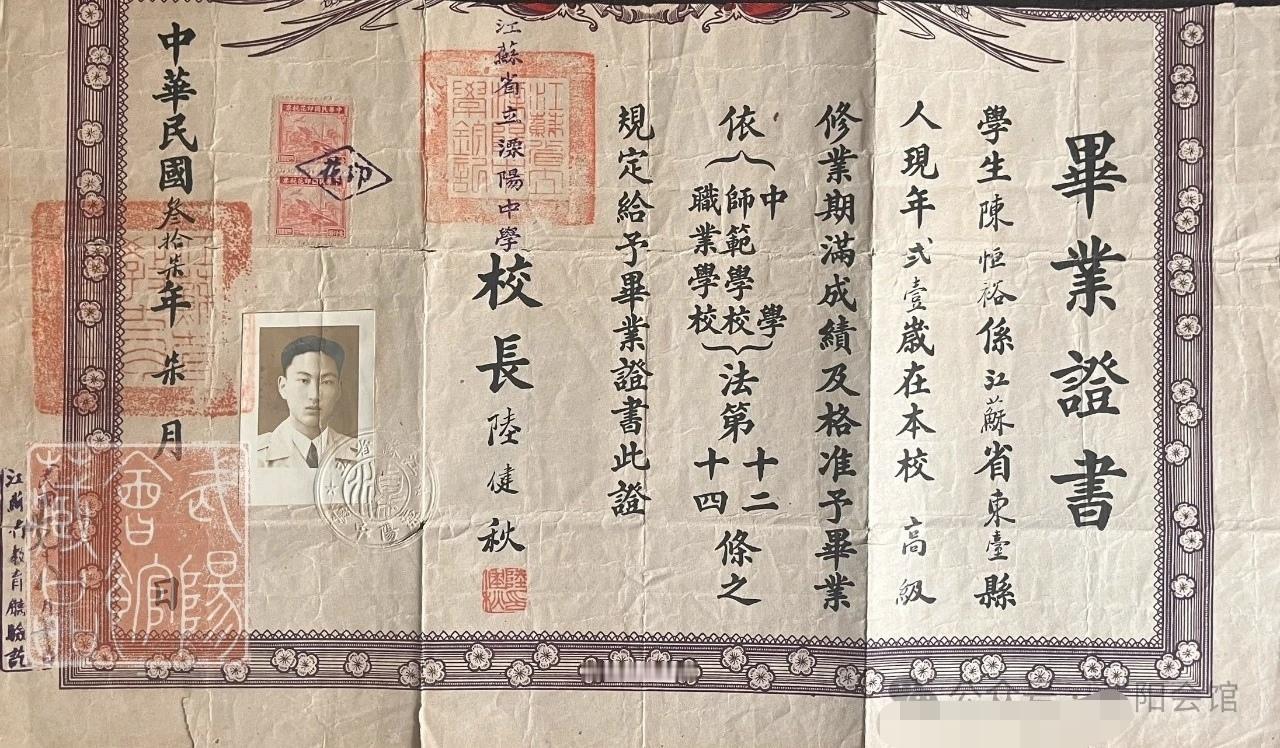 畢業證書
學生陳恒裕係江蘇省東臺縣
人現年弍壹歲在本校 高級
修業期滿成績及格准予畢業
依
中學
師範學校
職業學校
法第
十二
十四
條之
規定給予畢業證書此證
江蘇省立溧陽中學校長陸健秋
中華民國叁拾柒年柒月 日
江蘇省教育廳驗訖
中華民國印花稅票
阳会馆